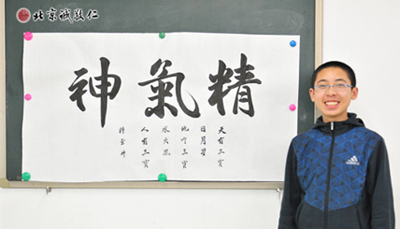 北京誠敬仁
精氣神
天有三寶
日月星
地有三寶
水火風
人有三寶
adidas